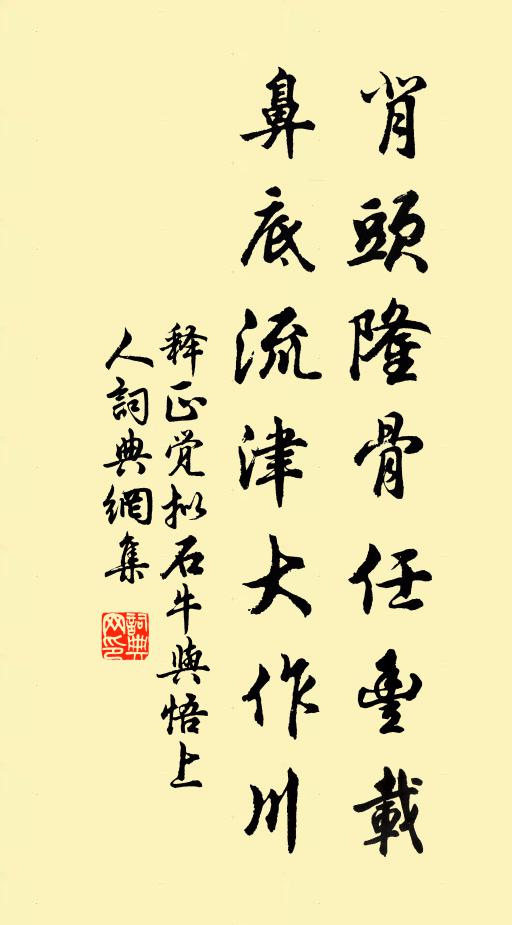 背頭隆骨任豊載
鼻底流津大作川
释正觉拟石牛與悟上
人詞典網集
詞典网印